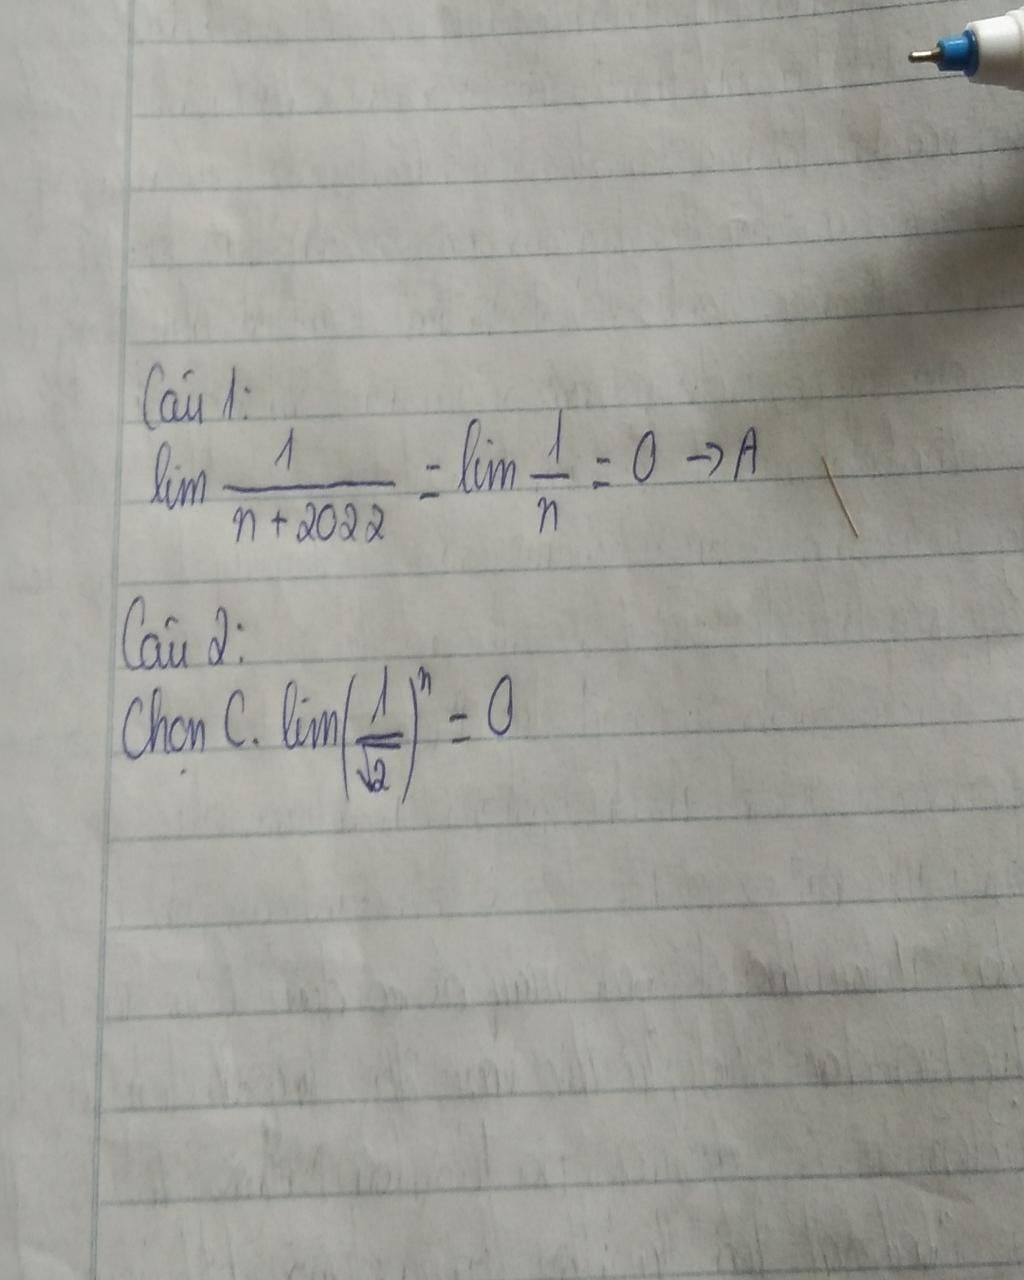 Câu 1:
lim 1/(n+2022) = lim 1/n = 0 → A
Câu 2:
Chọn C. lim(1/√2)ⁿ = 0